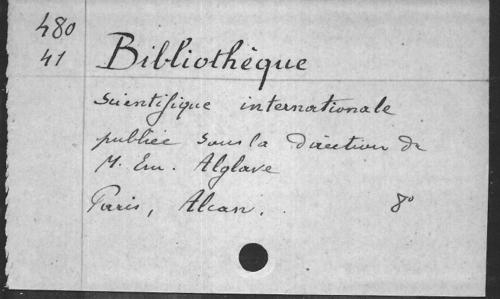 480
41
Bibliothèque
scientifique internationale
publiée sous la direction de
M. Em. Alglave
Paris, Alcan. 8°